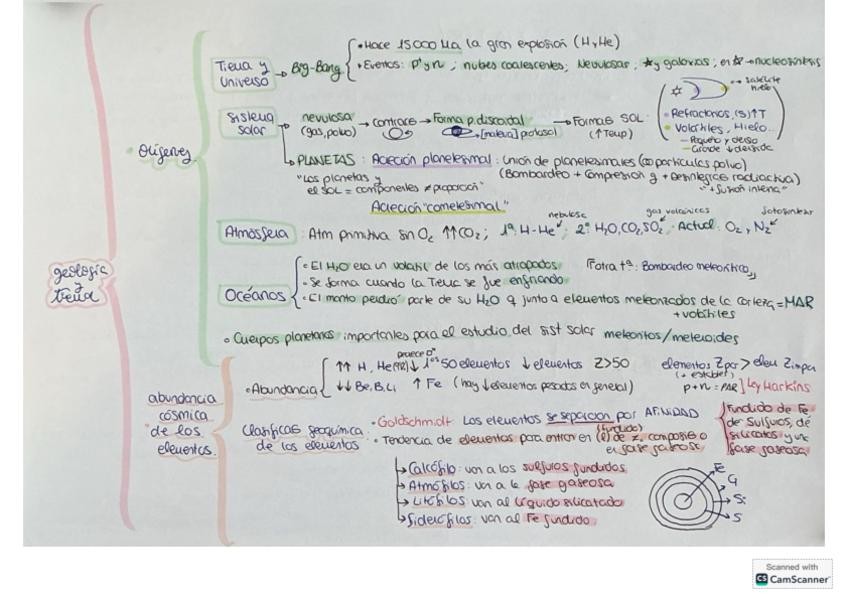 geología y tierra
Orígenes
Tierra y Universo → Big-Bang
• Hace 15000 Ma la gran explosión (H y He)
• Eventos: p⁺ y n ; nubes coalescentes; Nevulosas, ★ y galaxias; en ☆ → nucleosíntesis
Sistema solar
nevulosa (gas, polvo) → contrae → Forma p. discoidal → Formas SOL: (↑Temp)
[materia] protosol
→ satélite hielo
• Refractarios, (S) ↑T
• Volátiles, Hielo...
– Pequeño y denso
– Grande ↓ densidad
→ PLANETAS : Acreción planetesimal : Unión de planetesimales (partículas polvo)
(Bombardeo + compresión g + Desintegrac radiactiva)
"Los planetas y el SOL = componentes ≠ proporción"
"+ fusión interna"
Acreción "cometesimal"
Atmósfera : Atm primitiva sin O₂ ↑↑CO₂ ; 1ª: H-He ; 2ª: H₂O, CO₂, SO₂ · Actual : O₂, N₂
nebulosa
gas volcánicos
fotosíntesis
Océanos
• El H₂O era un volátil de los más atrapados
Otra tª : Bombardeo meteorítico
• Se forma cuando la Tierra se fue enfriando
• El manto perdió parte de su H₂O q junto a elementos meteorizados de la corteza = MAR
+ volátiles
• Cuerpos planetarios importantes para el estudio del sist solar meteoritos/meteroides
abundancia cósmica de los elementos
• Abundancia
↑↑ H, He ↓ 1ᵒˢ 50 elementos ↓ elementos Z>50
↓↓ Be, B, Li ↑ Fe (hay ↓ elementos pesados en general)
elementos Z par > elem Z impar
(+ estables)
p + n = PAR ] Ley Harkins
Clasificac geoquímica de los elementos
• Goldschmidt: Los elementos se separaron por AFINIDAD
• Tendencia de elementos para entrar en (l) de composic o en fase gaseosa
(fundido)
fundido de Fe, de Sulfuros, de silicatos y une fase gaseosa
→ Calcófilo: van a los sulfuros fundidos
→ Atmófilos: van a la fase gaseosa
→ Litófilos: van al líquido silicatado
→ Siderófilos: van al Fe fundido
G
Si
S
Scanned with
CS CamScanner